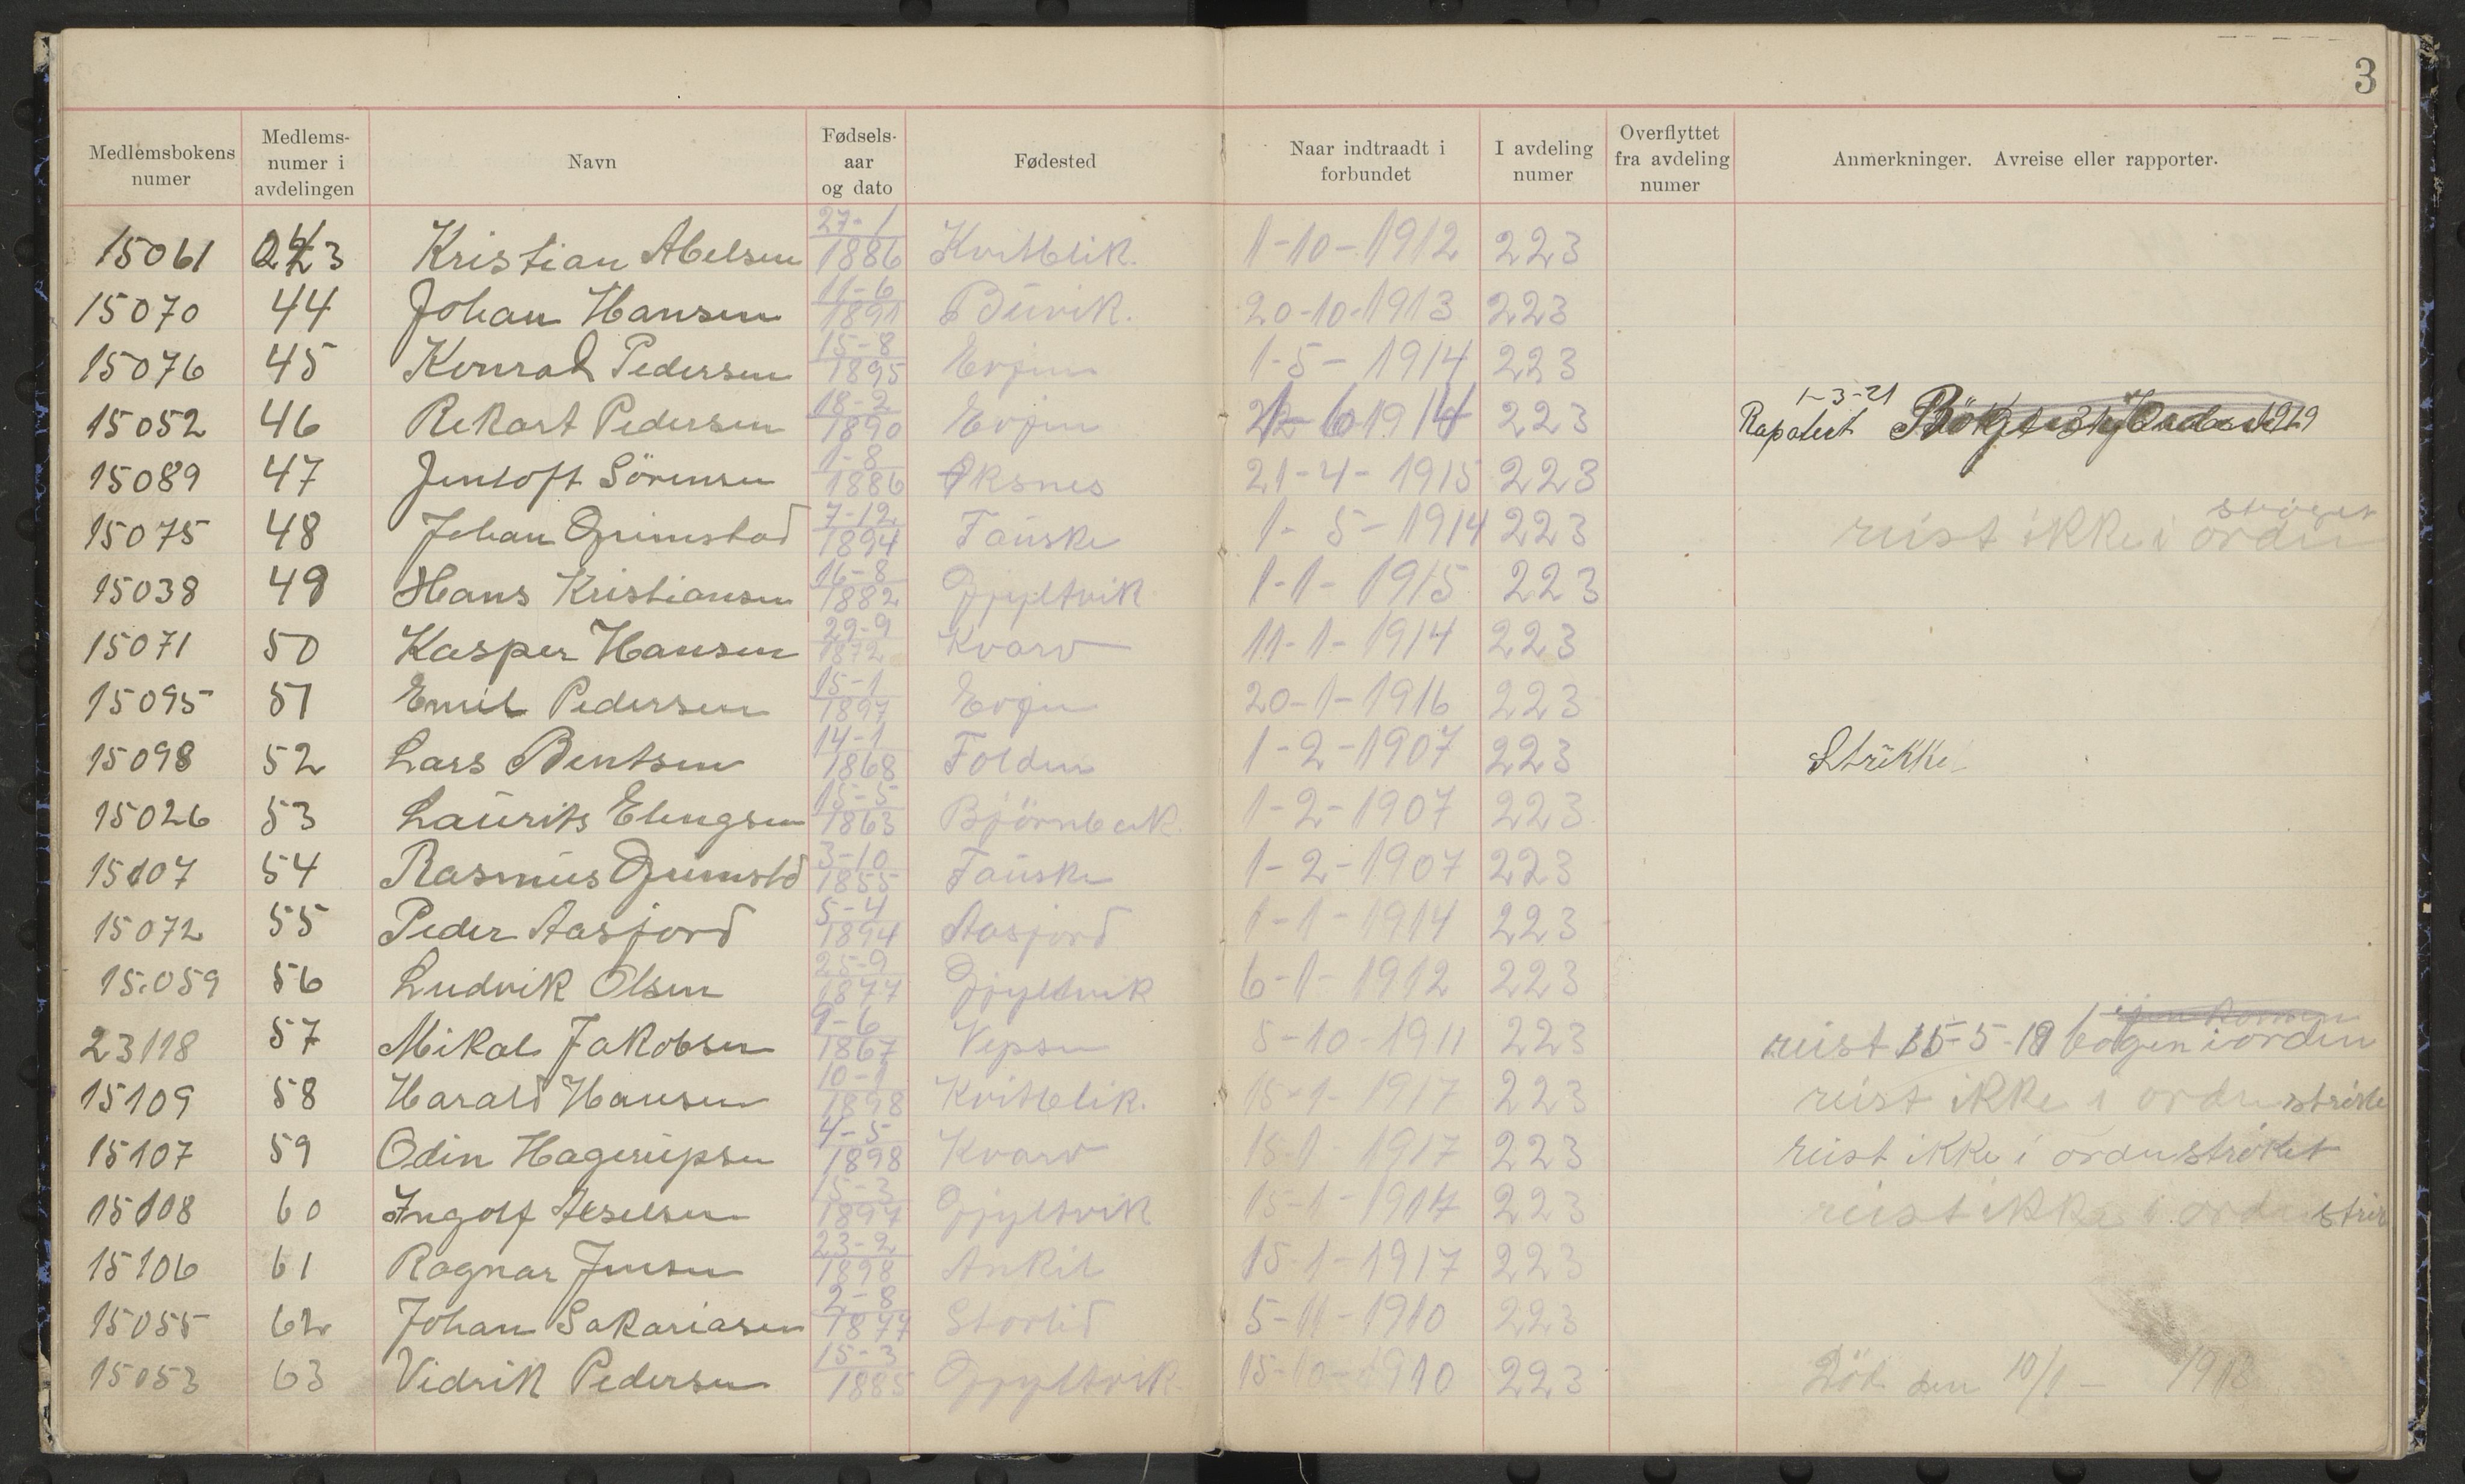 3
Medlemsbokens numer
Medlems- numer i avdelingen
Navn
Fødsels- aar og dato
Fødested
Naar indtraadt i forbundet
I avdeling numer
Overflyttet fra avdeling numer
Anmerkninger. Avreise eller rapporter.
15061 43 Kristian Abelsen 27-1 1886 Kvitblik. 1-10-1912 223
15070 44 Johan Hansen 11-6 1891 Buvik. 20-10-1913 223
15076 45 Konrad Pedersen 15-8 1895 Evjen 1-5-1914 223
15052 46 Rekart Pedersen 18-2 1890 Evjen 1914 223 Rapotert 1-3-21 1919
15089 47 Jentoft Sörensen 1-8 1886 Oksnes 21-4-1915 223
15075 48 Johan Grimstad 7-12 1894 Fauske 1-5-1914 223 reist ikke i orden
15038 49 Hans Kristiansen 16-8 1882 Gjyltvik 1-1-1915 223
15071 50 Kasper Hansen 29-9 1872 Kvarv 11-1-1914 223
15095 51 Emil Pedersen 15-1 1897 Evjen 20-1-1916 223
15098 52 Lars Bentsen 14-1 1868 Folden 1-2-1907 223 Strikke
15026 53 Laurits Elingsen 15-5 1863 Björnbak 1-2-1907 223
15107 54 Rasmus Grimstd 3-10 1855 Fauske 1-2-1907 223
15072 55 Peder Aasjord 5-4 1894 Aasjord 1-1-1914 223
15.059 56 Ludvik Olsen 25-9 1877 Gjyltvik 6-1-1912 223
23118 57 Mikal Jakobsen 9-6 1867 Vepsen 5-10-1911 223 reist 15-5-18 bogen iorden
15109 58 Harald Hansen 10-1 1898 Kvitblik. 15-1-1917 223 reist ikke i orden
15107 59 Odin Hagerupsen 4-5 1898 Kvarv 15-1 1917 223 reist ikke i orden strøket
15108 60 Ingolf Akselsen 15-3 1897 Gjyltvik 15-1-1917 223 reist ikke i orden
15106 61 Ragnar Jensen 23-2 1898 Ankil 15-1-1917 223
15055 62 Johan Sakariasen 2-8 1877 Storlid 5-11-1910 223
15053 63 Vidrik Pedersen 15-3 1885 Gjyltvik 15-10-1910 223 Död den 10/1 - 1918